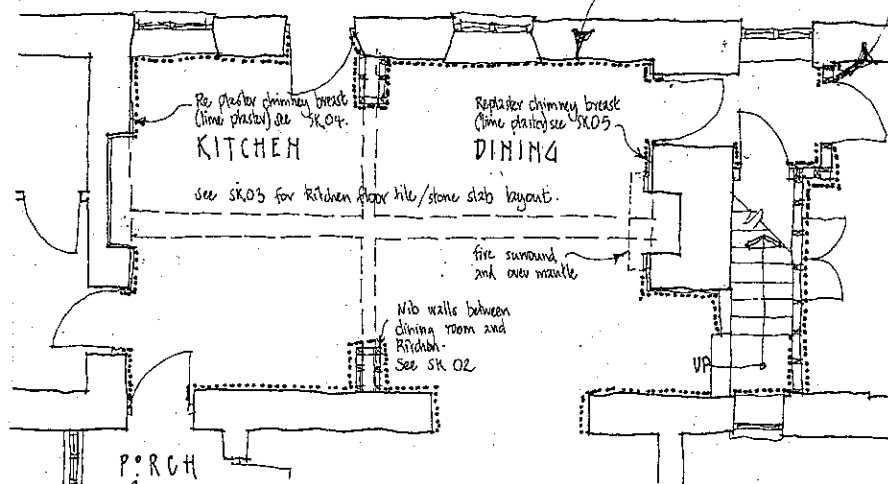 Re plaster chimney breast
(lime plaster) see SK04.
KITCHEN
Replaster chimney breast
(lime plaster) see SK05
DINING
See SK03 for kitchen floor tile/stone slab layout.
fire surround
and over mantle
Nib walls between
dining room and
Kitchen.
See SK 02
UP
PORCH